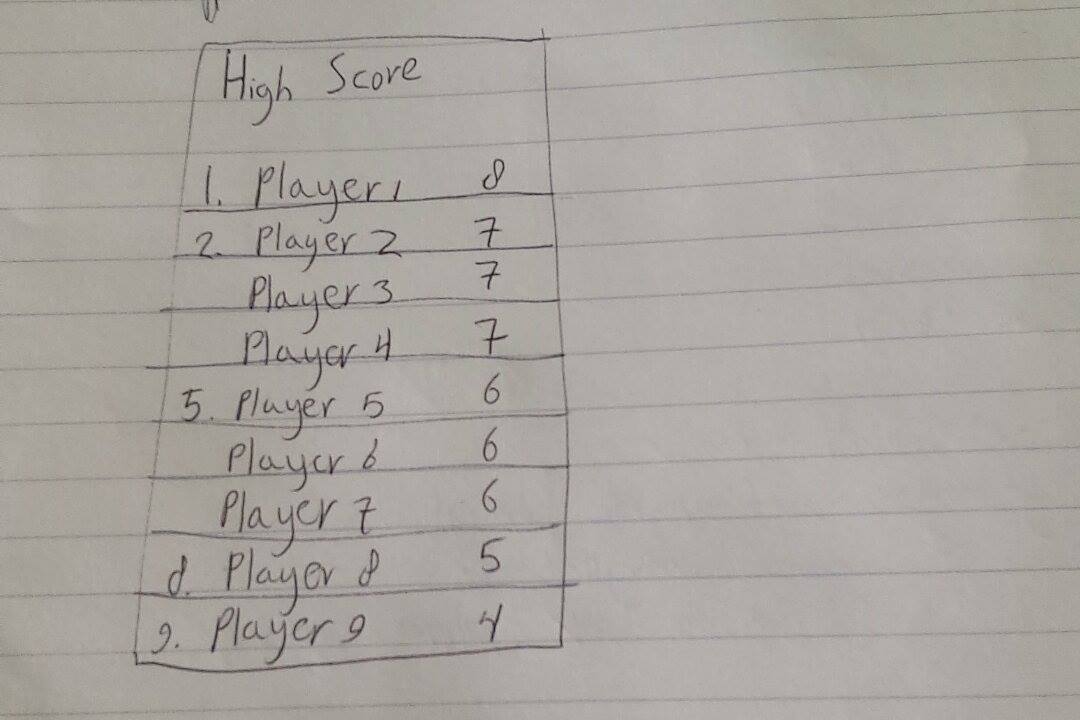 High Score
1. Player 1 8
2. Player 2 7
Player 3 7
Player 4 7
5. Player 5 6
Player 6 6
Player 7 6
8. Player 8 5
9. Player 9 4